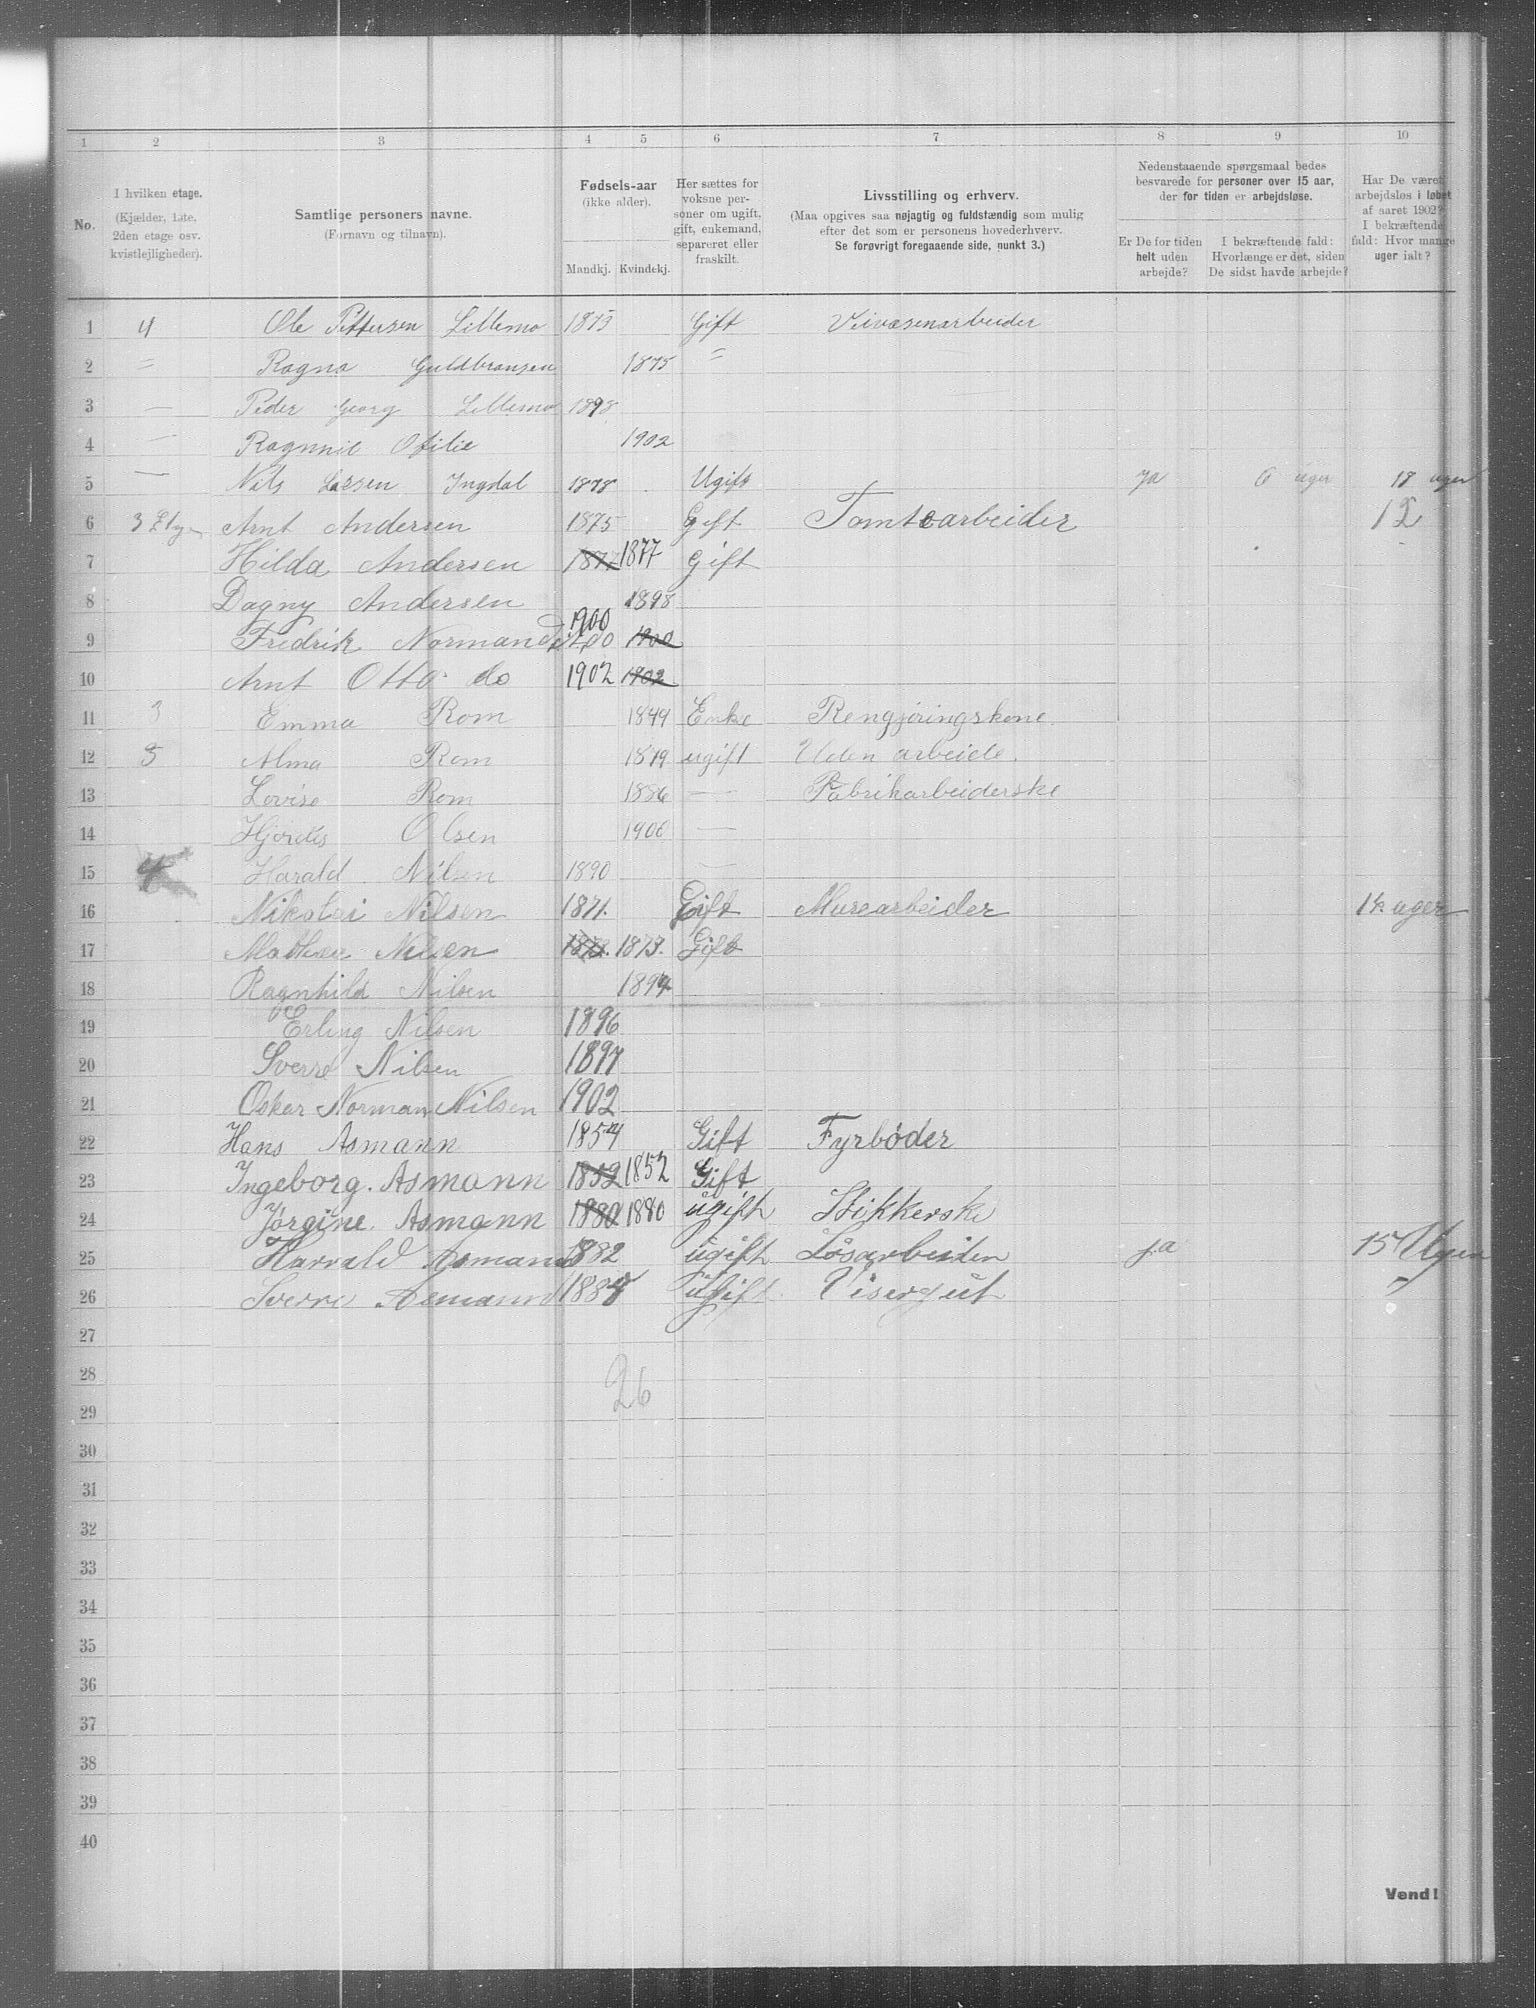 1 2 3 4 5 6 7 8 9 10
No.
I hvilken etage.
(Kjælder, 1ste,
2den etage osv.
kvistlejligheder).
Samtlige personers navne.
(Fornavn og tilnavn).
Fødsels-aar
(ikke alder).
Mandkj. Kvindekj.
Her sættes for
voksne per-
soner om ugift,
gift, enkemand,
separeret eller
fraskilt.
Livsstilling og erhverv.
(Maa opgives saa nøjagtig og fuldstændig som mulig
efter det som er personens hovederhverv.
Se forøvrigt foregaaende side, punkt 3.)
Nedenstaaende spørgsmaal bedes
besvarede for personer over 15 aar,
der for tiden er arbejdsløse.
Er De for tiden
helt uden
arbejde?
I bekræftende fald:
Hvorlænge er det, siden
De sidst havde arbejde?
Har De været
arbejdsløs i løbet
af aaret 1902?
I bekræftende
fald: Hvor mange
uger ialt?
1 4 Ole Pettersen Lillemo 1873 Gift Veivæsenarbeider
2 = Ragna Guldbransen 1875 =
3 — Peder Georg Lillemo 1898
4 — Ragnnie Otilie 1902
5 — Nils Larsen Ingdal 1878 Ugift ja 6 uger 18 uger
6 3 Etage Arnt Andersen 1875 Gift Tomtearbeider 12
7 Hilda Andersen 1877 1877 Gift
8 Dagny Andersen 1898
9 Fredrik Norman do 1900 1900 1900
10 Arnt Otto do 1902 1902
11 3 Emma Rom 1849 Enke Rengjøringskone
12 3 Alma Rom 1879 ugift Uden arbeide.
13 Lovise Rom 1886 — Fabrikarbeiderske
14 Hjørdis Olsen 1900 —
15 4 Harald Nilsen 1890 —
16 Nikolai Nilsen 1871. Gift Murearbeider 14 uger
17 Nilsen 1873. Gift
18 Ragnhild Nilsen 1894
19 Erling Nilsen 1896
20 Sverre Nilsen 1897
21 Oskar Norman Nilsen 1902
22 Hans Asmann 1857 Gift Fyrbøder
23 Ingeborg. Asmann 1852 1852 Gift
24 Jørgine. Asmann 1880 1880 ugift Stikkerske
25 Harrald Asmann 1882 ugift Løsarbeiden ja 15 Uger
26 Sverre Asmann 1888 Ugift Visergut "
27
28
26
29
30
31
32
33
34
35
36
37
38
39
40
Vend!